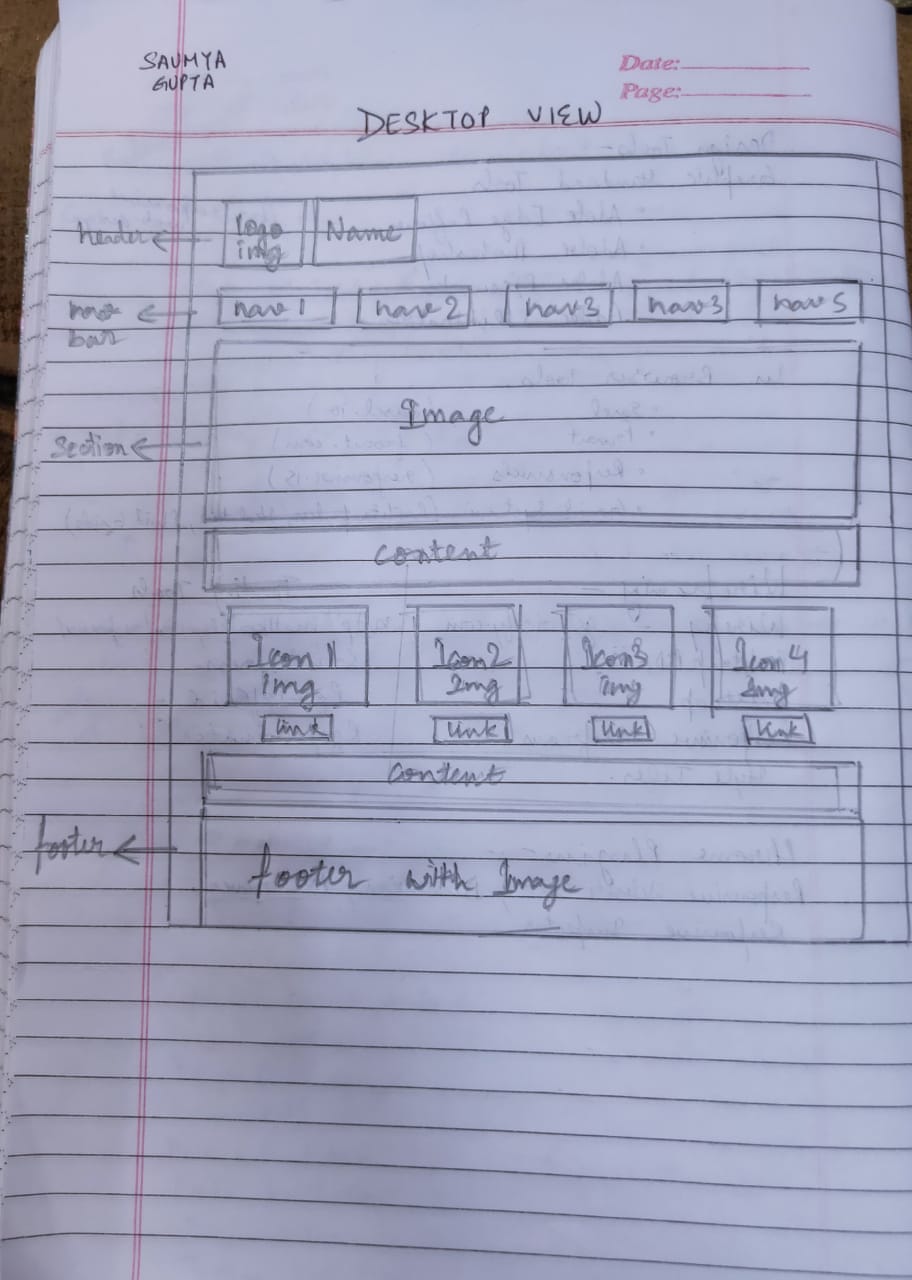 SAUMYA
GUPTA
Date:
Page:
DESKTOP VIEW
header
logo
img
Name
nav
bar
nav 1
nav 2
nav 3
nav 3
nav 5
Image
Section
content
Icon 1
img
Icon 2
img
Icon 3
img
Icon 4
img
link
link
link
link
content
footer
footer with Image